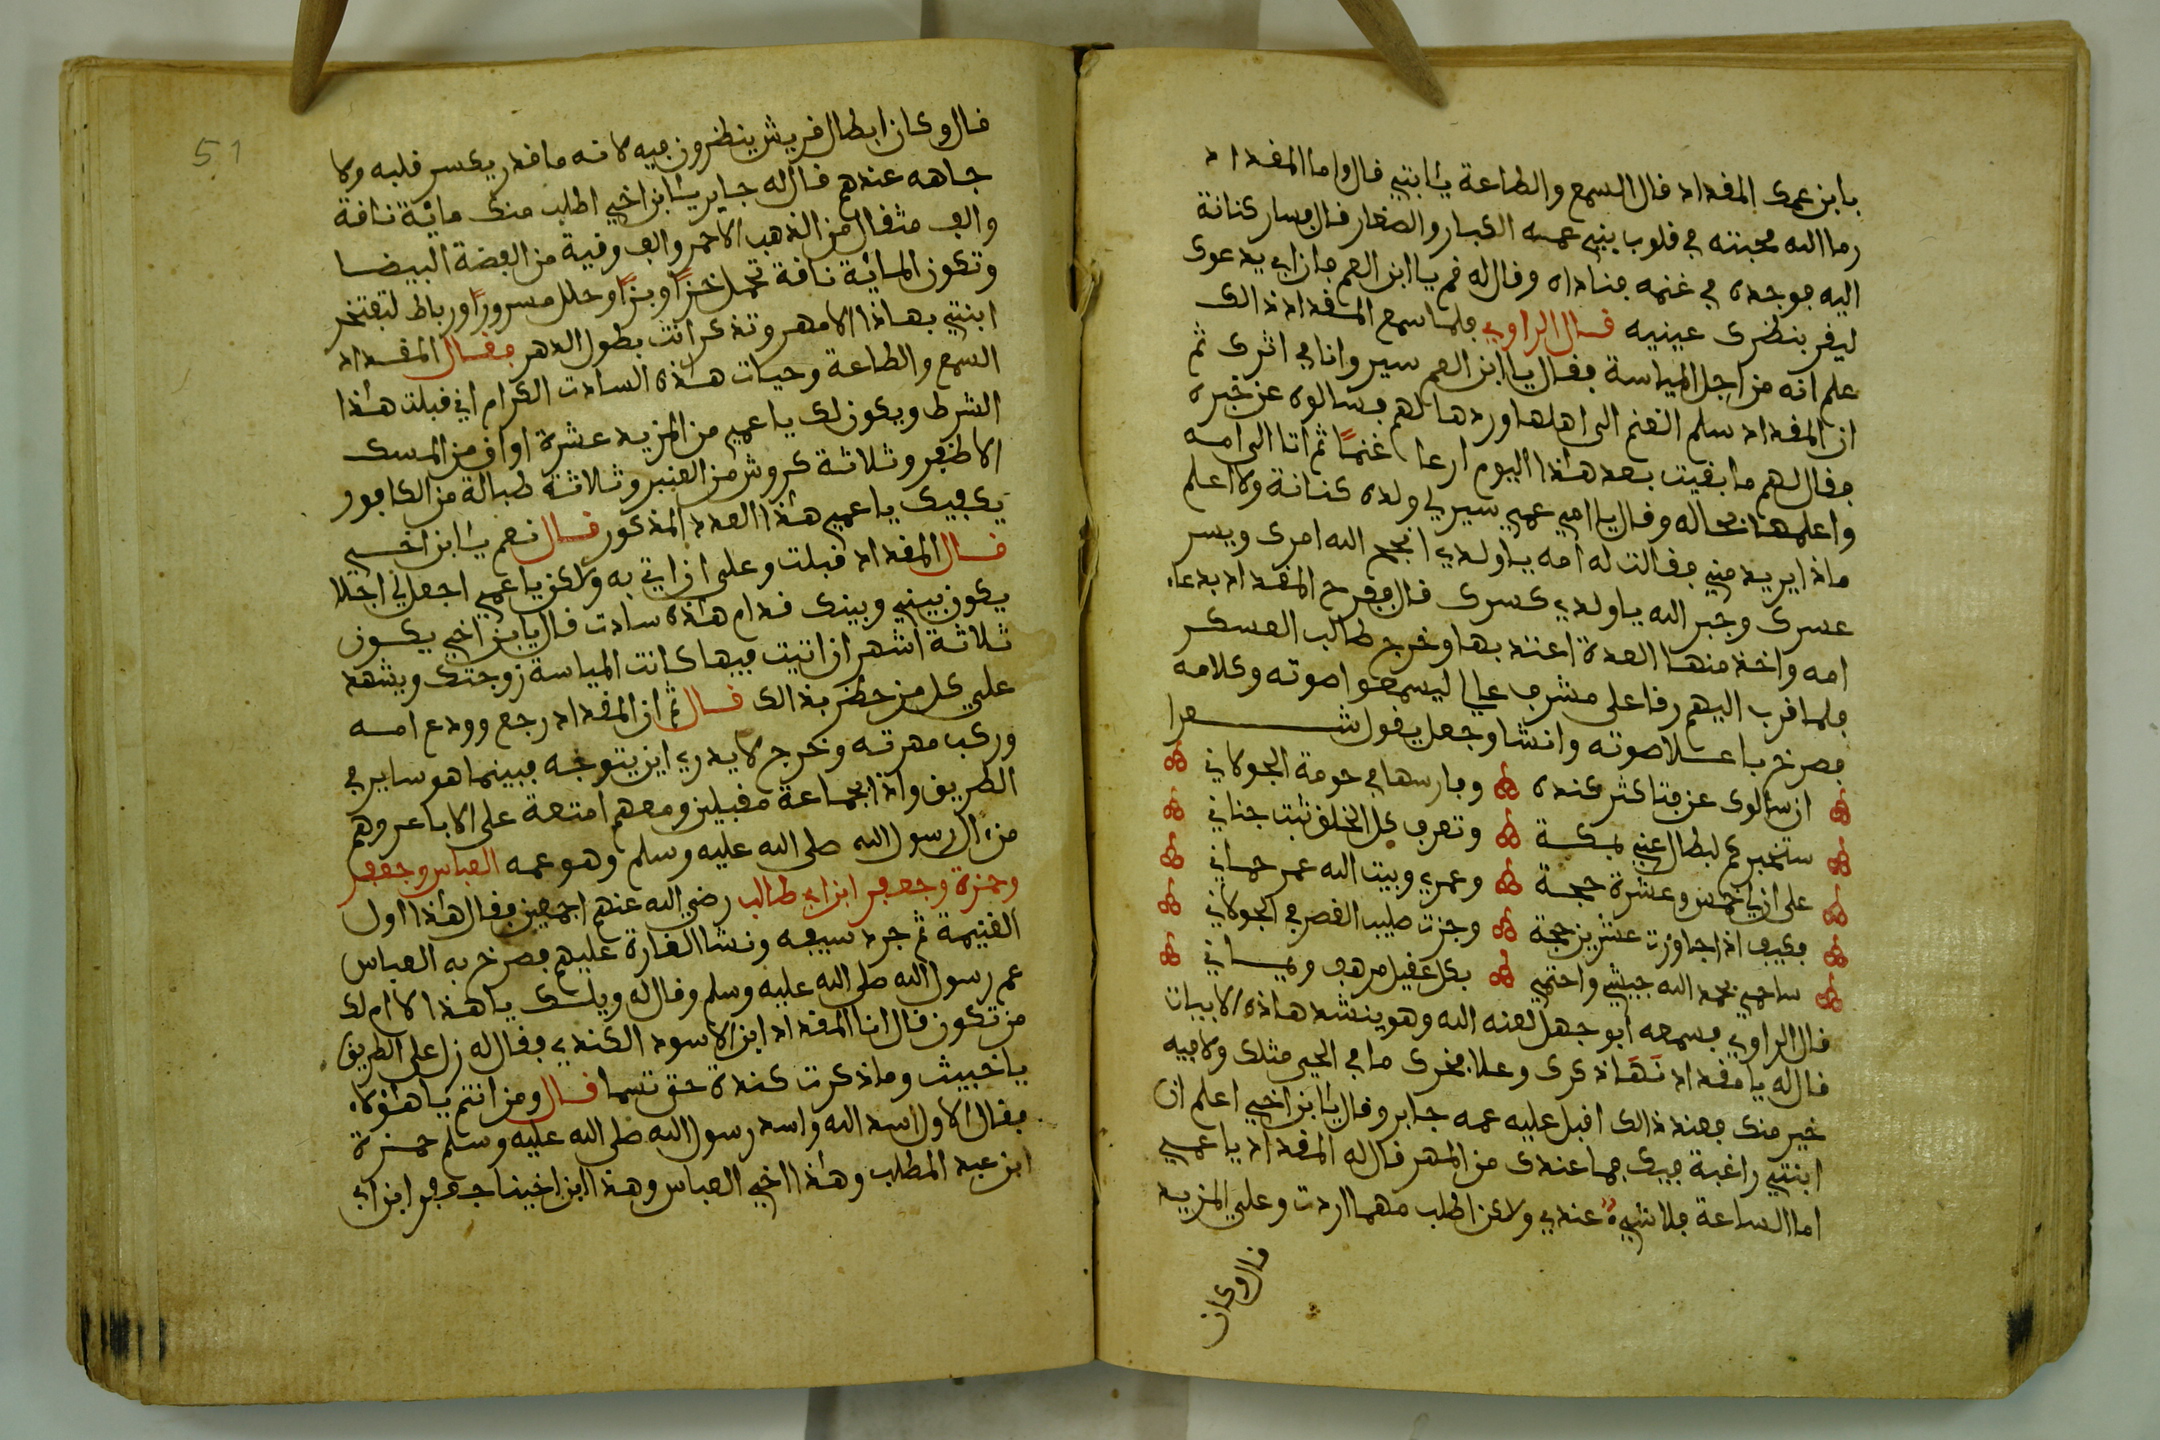 بابن عمك المقداد قال السمع والطاعة يا ابنتي قال واما المقداد
رما الله محبته في قلوب بني عمه الكبار والصغار قال فسار كنانة
اليه فوجده في غنمه فناداه وقال له قم يا ابن العم فان ابي يدعوك
ليقر بنظرك عينيه قال الراوي فلما سمع المقداد ذالك
علم انه من اجل المياسة فقال يا ابن العم سير وانا في اثرك ثم
ان المقداد سلم الغنم الى اهلها وردها لهم فسالوه عن خبره
فقال لهم ما بقيت بعد هذا اليوم ارعا غنمًا ثم اتا الى امه
واعلمها بحاله وقال يا امي عمي سير لي ولده كنانة ولا اعلم
ماذا يريد مني فقالت له امه يا ولدي انجح الله امرك ويسر
عسرك وجبر الله يا ولدي كسرك قال ففرح المقداد بدعاء
امه واخذ منها العدة اعتد بها وخرج طالب العسكر
فلما قرب اليهم رقا على مشرف عالي ليسمعوا صوته وكلامه
فصرخ باعلا صوته وانشا وجعل يقول شعرا
ان سالوك عن فتا كثر كنده وفارسها في حومة الجولاني
ستخبركم لبطال عني بمكة وتعرف كل الخلق ثبت جناني
على ان لي خمس وعشرة حجة وعمري وبيت الله عمر حساني
فكيف اذا جاوزت عشرين حجة وجزت صليب القصر في الجولاني
ساحمي بحمد الله جيشي واحتمي بكل عقيل مرهف ويماني
قال الراوي فسمعه ابو جهل لعنه الله وهو ينشد هاذه الابيات
قال له يا مقداد نَهَا ذكرك وعلا فخرك ما في الحي مثلك ولا فيه
خير منك فعند ذالك اقبل عليه عمه جابر وقال يا ابن اخي اعلم ان
ابنتي راغبة فيك فما عندك من المهر قال له المقداد يا عمي
اما الساعة فلا شيء عندي ولاكن اطلب مهما اردت وعلي المزيد
قال وكان
51
قال وكان ابطال قريش ينظرون فيه لانه ما قدر يكسر قلبه ولا
جاهه عندهم قال له جابر يا ابن اخي اطلب منك ماية ناقة
والف مثقال من الذهب الاحمر والف وقية من الفضة البيضا
وتكون الماية ناقة تحمل خزًا وبزًا وحلل مسرورًا ورباط لتفتخر
ابنتي بهاذا الامهر وتذكر انت بطول الدهر فقال المقداد
السمع والطاعة وحيات هذه السادت الكرام اني قبلت هذا
الشرط ويكون لك يا عمي من المزيد عشرة اواق من المسك
الاظفر وثلاثة كروش من العنبر وثلاثة طبالة من الكافور
يكفيك يا عمي هذا العدد المذكور قال نعم يا ابن اخي
قال المقداد قبلت وعلي ان اتي به ولاكن يا عمي اجعل لي اجلا
يكون بيني وبينك قدام هذه سادت قال يا بن اخي يكون
ثلاثة اشهر ان اتيت فيها كانت المياسة زوجتك ويشهد
علي كل من حظر بذالك قال ثم ان المقداد رجع وودع امه
وركب مهرته وخرج لا يدري اين يتوجه فبينما هو ساير في
الطريق واذا بجماعة مقبلين ومعهم امتعة على الاباعر وهم
من ال رسول الله صلى الله عليه وسلم وهو عمه العباس وجعفر
وحمزة وجعفر ابن ابي طالب رضي الله عنهم اجمعين فقال هذا اول
الغنيمة ثم جرد سيفه ونشا الغارة عليهم فصرخ به العباس
عم رسول الله صلى الله عليه وسلم وقال له ويلك يا هذا لا ام لك
من تكون قال انا المقداد ابن الاسود الكندي فقال له زل على الطريق
يا خبيث وما ذكرت كندة حق تسما قال ومن انتم يا هؤلاء
فقال الاول اسد الله واسد رسول الله صلى الله عليه وسلم حمزة
ابن عبد المطلب وهذا اخي العباس وهذا ابن اخينا جعفر ابن ابي